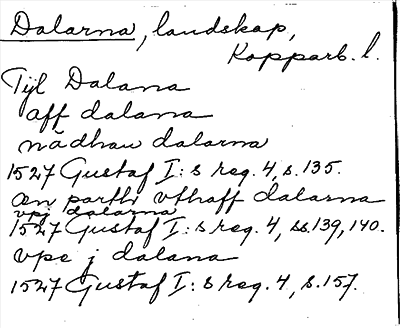 Dalarna, landskap,
Kopparb. l.
Tijl Dalana
aff dalana
nådhan dalarna
1527 Gustaf I:s reg. 4, s. 135.
æn parthi vthaff dalarna
vpj dalarna
1527 Gustaf I:s reg. 4, ss. 139, 140.
vpe j dalana
1527 Gustaf I:s reg. 4, s. 157.